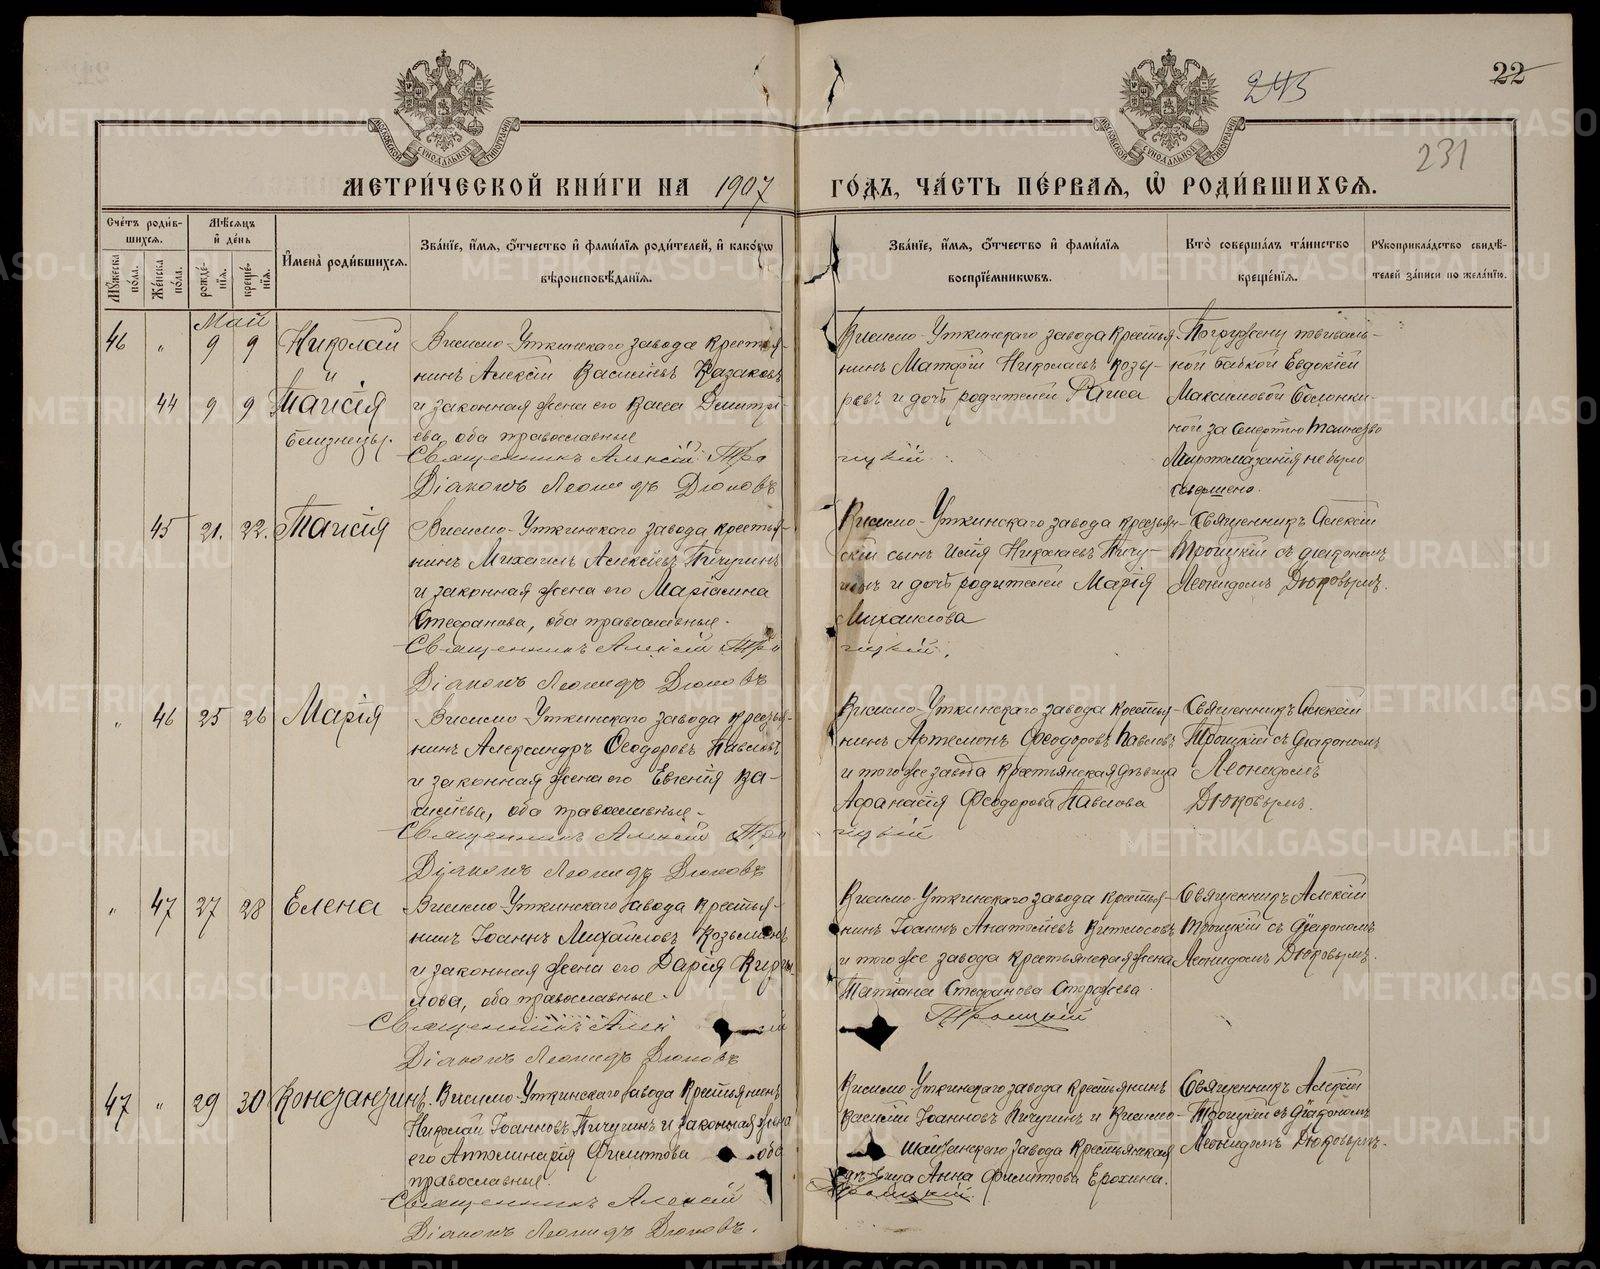 245
22
231
МОСКОВСКОЙ СѴНОДАЛЬНОЙ ТИПОГРАФІИ
МОСКОВСКОЙ СѴНОДАЛЬНОЙ ТИПОГРАФІИ
МЕТРИ́ЧЕСКОЙ КНИ́ГИ НА 1907 ГО́ДЪ, ЧА́СТЬ ПЕ́РВАЯ, Ѡ РОДИ́ВШИХСЯ.
Сче́тъ роди́в-
шихся.
Мꙋ́жеска по́ла.
Же́нска по́ла.
Мѣ́сяцъ
и де́нь
рожде́-
нія.
креще́-
нія.
Имена̀ роди́вшихся.
Зва́ніе, и́мя, о́тчество и фами́лія роди́телей, и како́гѡ
вѣроисповѣ́данія.
Зва́ніе, и́мя, о́тчество и фами́лія
воспріе́мниковъ.
Кто̀ соверша́лъ та́инство
креще́нія.
Рꙋкоприкла́дство свидѣ́-
телей за́писи по жела́нію.
Май
46 „ 9 9 Николай
и
44 9 9 Таисія
близнецы.
Висимо-Уткинскаго завода крестья-
нинъ Алексій Васильевъ Казаковъ
и законная жена его Васса Димитрі-
ева, оба православные
Священникъ Алексій Троицкій
Діаконъ Леонидъ Дюковъ
Висимо-Уткинскаго завода крестья-
нинъ Матфій Николаевъ Козы-
ревъ и дочь родителей Раиса
Погружены повиваль-
ной бабкой Евдокіей
Максимовой Болонки-
ной за смертію таинство
Миропомазанія не было
совершено.
45 21. 22. Таисія
Висимо-Уткинскаго завода крестья-
нинъ Михаилъ Алексѣевъ Пичугинъ
и законная жена его Маріамна
Стефанова, оба православные.
Священникъ Алексій Троицкій.
Діаконъ Леонидъ Дюковъ
Висимо-Уткинскаго завода крестьян-
скій сынъ Илія Николаевъ Пичу-
гинъ и дочь родителей Марія
Михаилова
Священникъ Алексій
Троицкій съ діакономъ
Леонидомъ Дюковымъ.
„ 46 25 26 Марія
Висимо-Уткинскаго завода крестья-
нинъ Александръ Ѳеодоровъ Павловъ
и законная жена его Евгенія Ва-
сильева, оба православные.
Священникъ Алексій Троицкій
Діаконъ Леонидъ Дюковъ
Висимо-Уткинскаго завода крестья-
нинъ Артемонъ Ѳеодоровъ Павловъ
и того же завода крестьянская дѣвица
Афанасія Ѳеодорова Павлова
Священникъ Алексій
Троицкій съ діакономъ
Леонидомъ
Дюковымъ.
„ 47 27 28 Елена
Висимо-Уткинскаго завода крестья-
нинъ Іоаннъ Михаиловъ Козьминъ
и законная жена его Дарія Кирил-
лова, оба православные.
Священникъ Алексій Троицкій
Діаконъ Леонидъ Дюковъ
Висимо-Уткинскаго завода крестья-
нинъ Іоаннъ Анатоліевъ
и того же завода крестьянская жена
Татіана Стефанова Сторожева.
Священникъ Алексій
Троицкій съ діакономъ
Леонидомъ Дюковымъ.
47 „ 29 30 Констанзинъ.
Висимо-Уткинскаго завода крестьянинъ
Николай Іоанновъ Пичугинъ и законная жена
его Апполинарія Филиппова оба
православные.
Священникъ Алексій Троицкій.
Діаконъ Леонидъ Дюковъ.
Висимо-Уткинскаго завода крестьянинъ
Василій Іоанновъ Пичугинъ и Висимо-
Шайтанскаго завода крестьянская
дѣвица Анна Филиппова Ерохина.
Священникъ Алексій
Троицкій съ діакономъ
Леонидомъ Дюковымъ.
METRIKI.GASO-URAL.RU